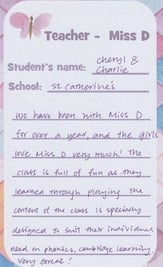 Teacher - Miss D
Student's name: Cheryl &
Charlie
School: St Catherine's
We have been with Miss D
for over a year, and the girls
love Miss D very much! The
class is full of fun as they
learned through playing. The
content of the class is specially
designed to suit their individual
need on phonics, cambridge learning.
Very Great!